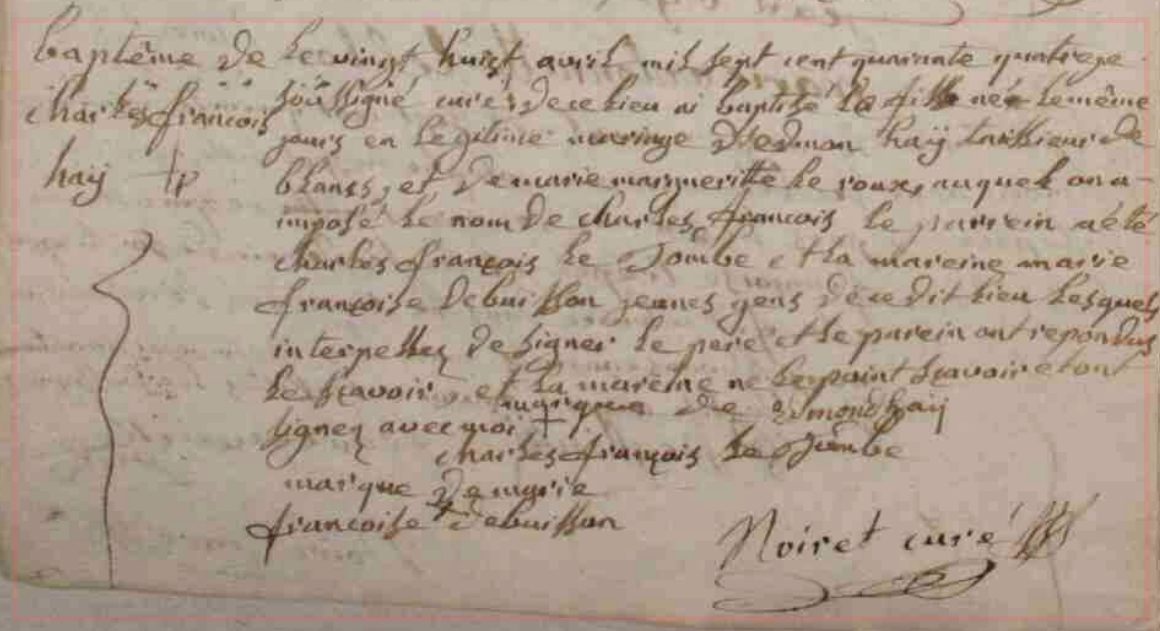 baptême de
charles françois
haÿ
le vingt huit avril mil sept cent quarante quatre je
soussigné curé de ce lieu ai baptisé le fils né le même
jours en legitime mariage d'edmon haÿ tailleur de
blancs, et de marie margueritte le roux, auquel on a
imposé le nom de charles françois le parrein a été
charles françois le Jombe et la mareine marie
françoise debuisson jeunes gens de ce dit lieu lesquels
interpellez de signer le pere et le parein ont repondus
le sçavoir, et la mareine ne le point sçavoir et ont
signez avec moi marque de edmond haÿ
charles françois le Jombe
marque de marie
françoise debuisson
Noiret curé